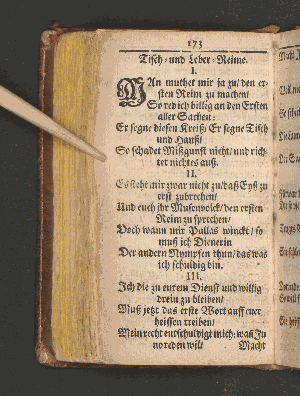 173
Tisch- und Leber-Reime.
I.
MAn muthet mir ja zu/ den er-
sten Reim zu machen/
So red ich billig an den Ersten
aller Sachen:
Er segne diesen Kreiß/ Er segne Tisch
und Hauß/
So schadet Mißgunst nicht/ und rich-
tet nichtes auß.
II.
Es steht mir zwar nicht zu/ daß Eyß zu
erst zubrechen/
Und euch ihr Musenvolck/ den ersten
Reim zu sprechen/
Doch wann mir Pallas winckt/ so
muß ich Dienerin
Der andern Nympfen thun/ das was
ich schuldig bin.
III.
Ich die zu eurem Dienst und willig
drein zu bleiben/
Muß jetzt das erste Wort auff euer
heissen treiben/
Mein recht entschuldigt mich: was Ju
no reden will
Macht